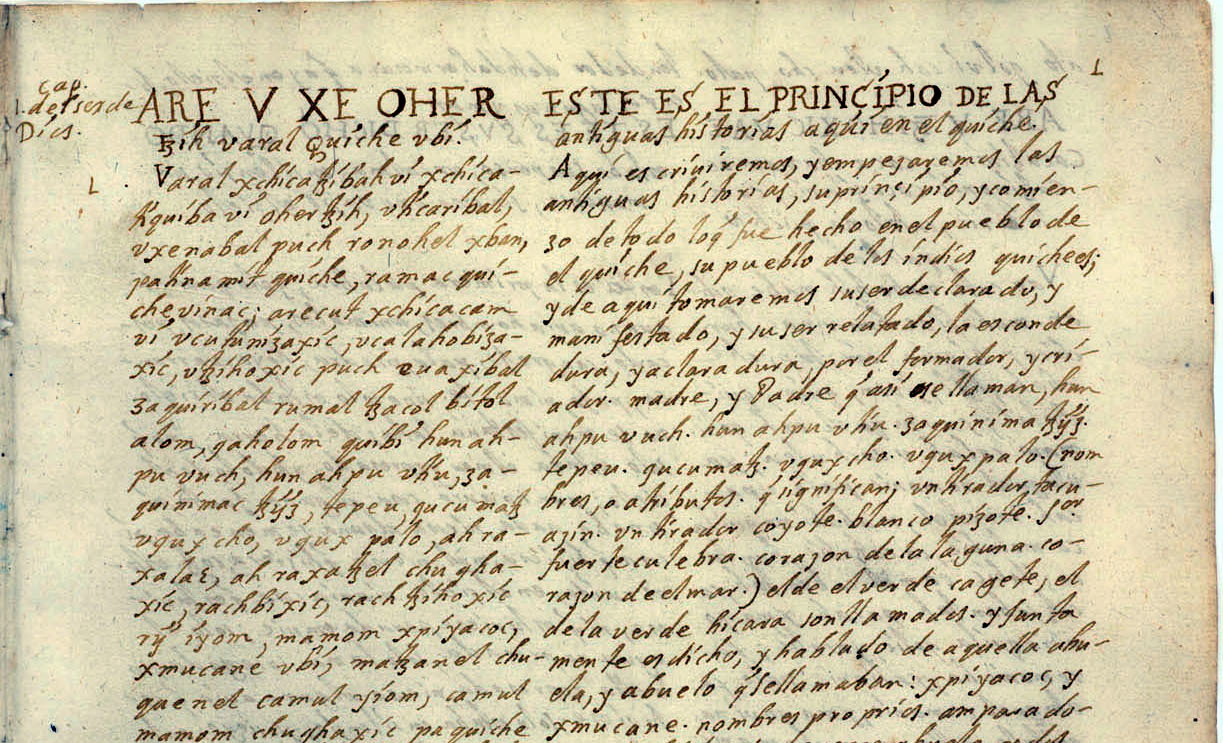 cap.
1. del ser de
Dios.
1
ARE V XE OHER
ꜩíh varal Quiche vbí.
Varal xchíca ꜩíbah ví xchíca-
tíquíba ví oher ꜩíh, vtícaríbal,
vxenabal puch ronohel xban,
pa tínamít quíche, ramac quí-
che vínac; arecut xchíca cam
ví vcutuníʒaxíc, vcalahobíʒa-
xíc, vꜩíhoxíc puch euaxíbal
ʒaquíríbal rumal ꜩacol bítol
alom, qaholom quíbí hun ah-
pu vuch, hun ahpu vtíu, ʒa-
quí nímac ꜩÿʒ, tepeu, qucumaꜩ
vqux cho, vqux palo, ah ra-
xa laꜫ, ah raxa ꜩel chuqha-
xíc, rachbíxíc, rach ꜩíhoxíc
rÿ íyom, mamom xpíyacoc,
xmucane vbí, maꜩanel chu-
quenel camul yíom, camul
mamom chuqhaxíc pa quíche
ESTE ES EL PRINCIPIO DE LAS
antiguas historias aquí en el quiche.
Aquí escriviremos, y empeʒaremos las
antiguas historias, su príncípío, y comíen-
ʒo de todo lo q̃ fue hecho en el pueblo de
el quiche, su pueblo de los indios quichees;
y de aquí tomaremos su ser declarado, y
manifestado, y su ser relatado, la esconde
dura, y aclaradura, por el formador, y crí-
ador. madre, y Padre q̃ asi se llaman, hun
ahpu vuch. hun ahpu vtíu. ʒaquíníma ꜩÿʒ.
tepeu. qucumaꜩ. vqux cho. vqux palo. (nom
bres, o atributos. q̃ significan; vn tirador, tacu-
aʒin. vn tirador coyote. blanco píʒote. for
fuerte culebra. coraʒon de la laguna. co-
raʒon de el mar.) el de el verde cagete, el
de la verde hícara son llamados. y junta
mente es dicho, y hablado de aquella abu-
ela, y abuelo q̃ se llamaban: xpíyacoc, y
xmucane. nombres proprios. amparado-